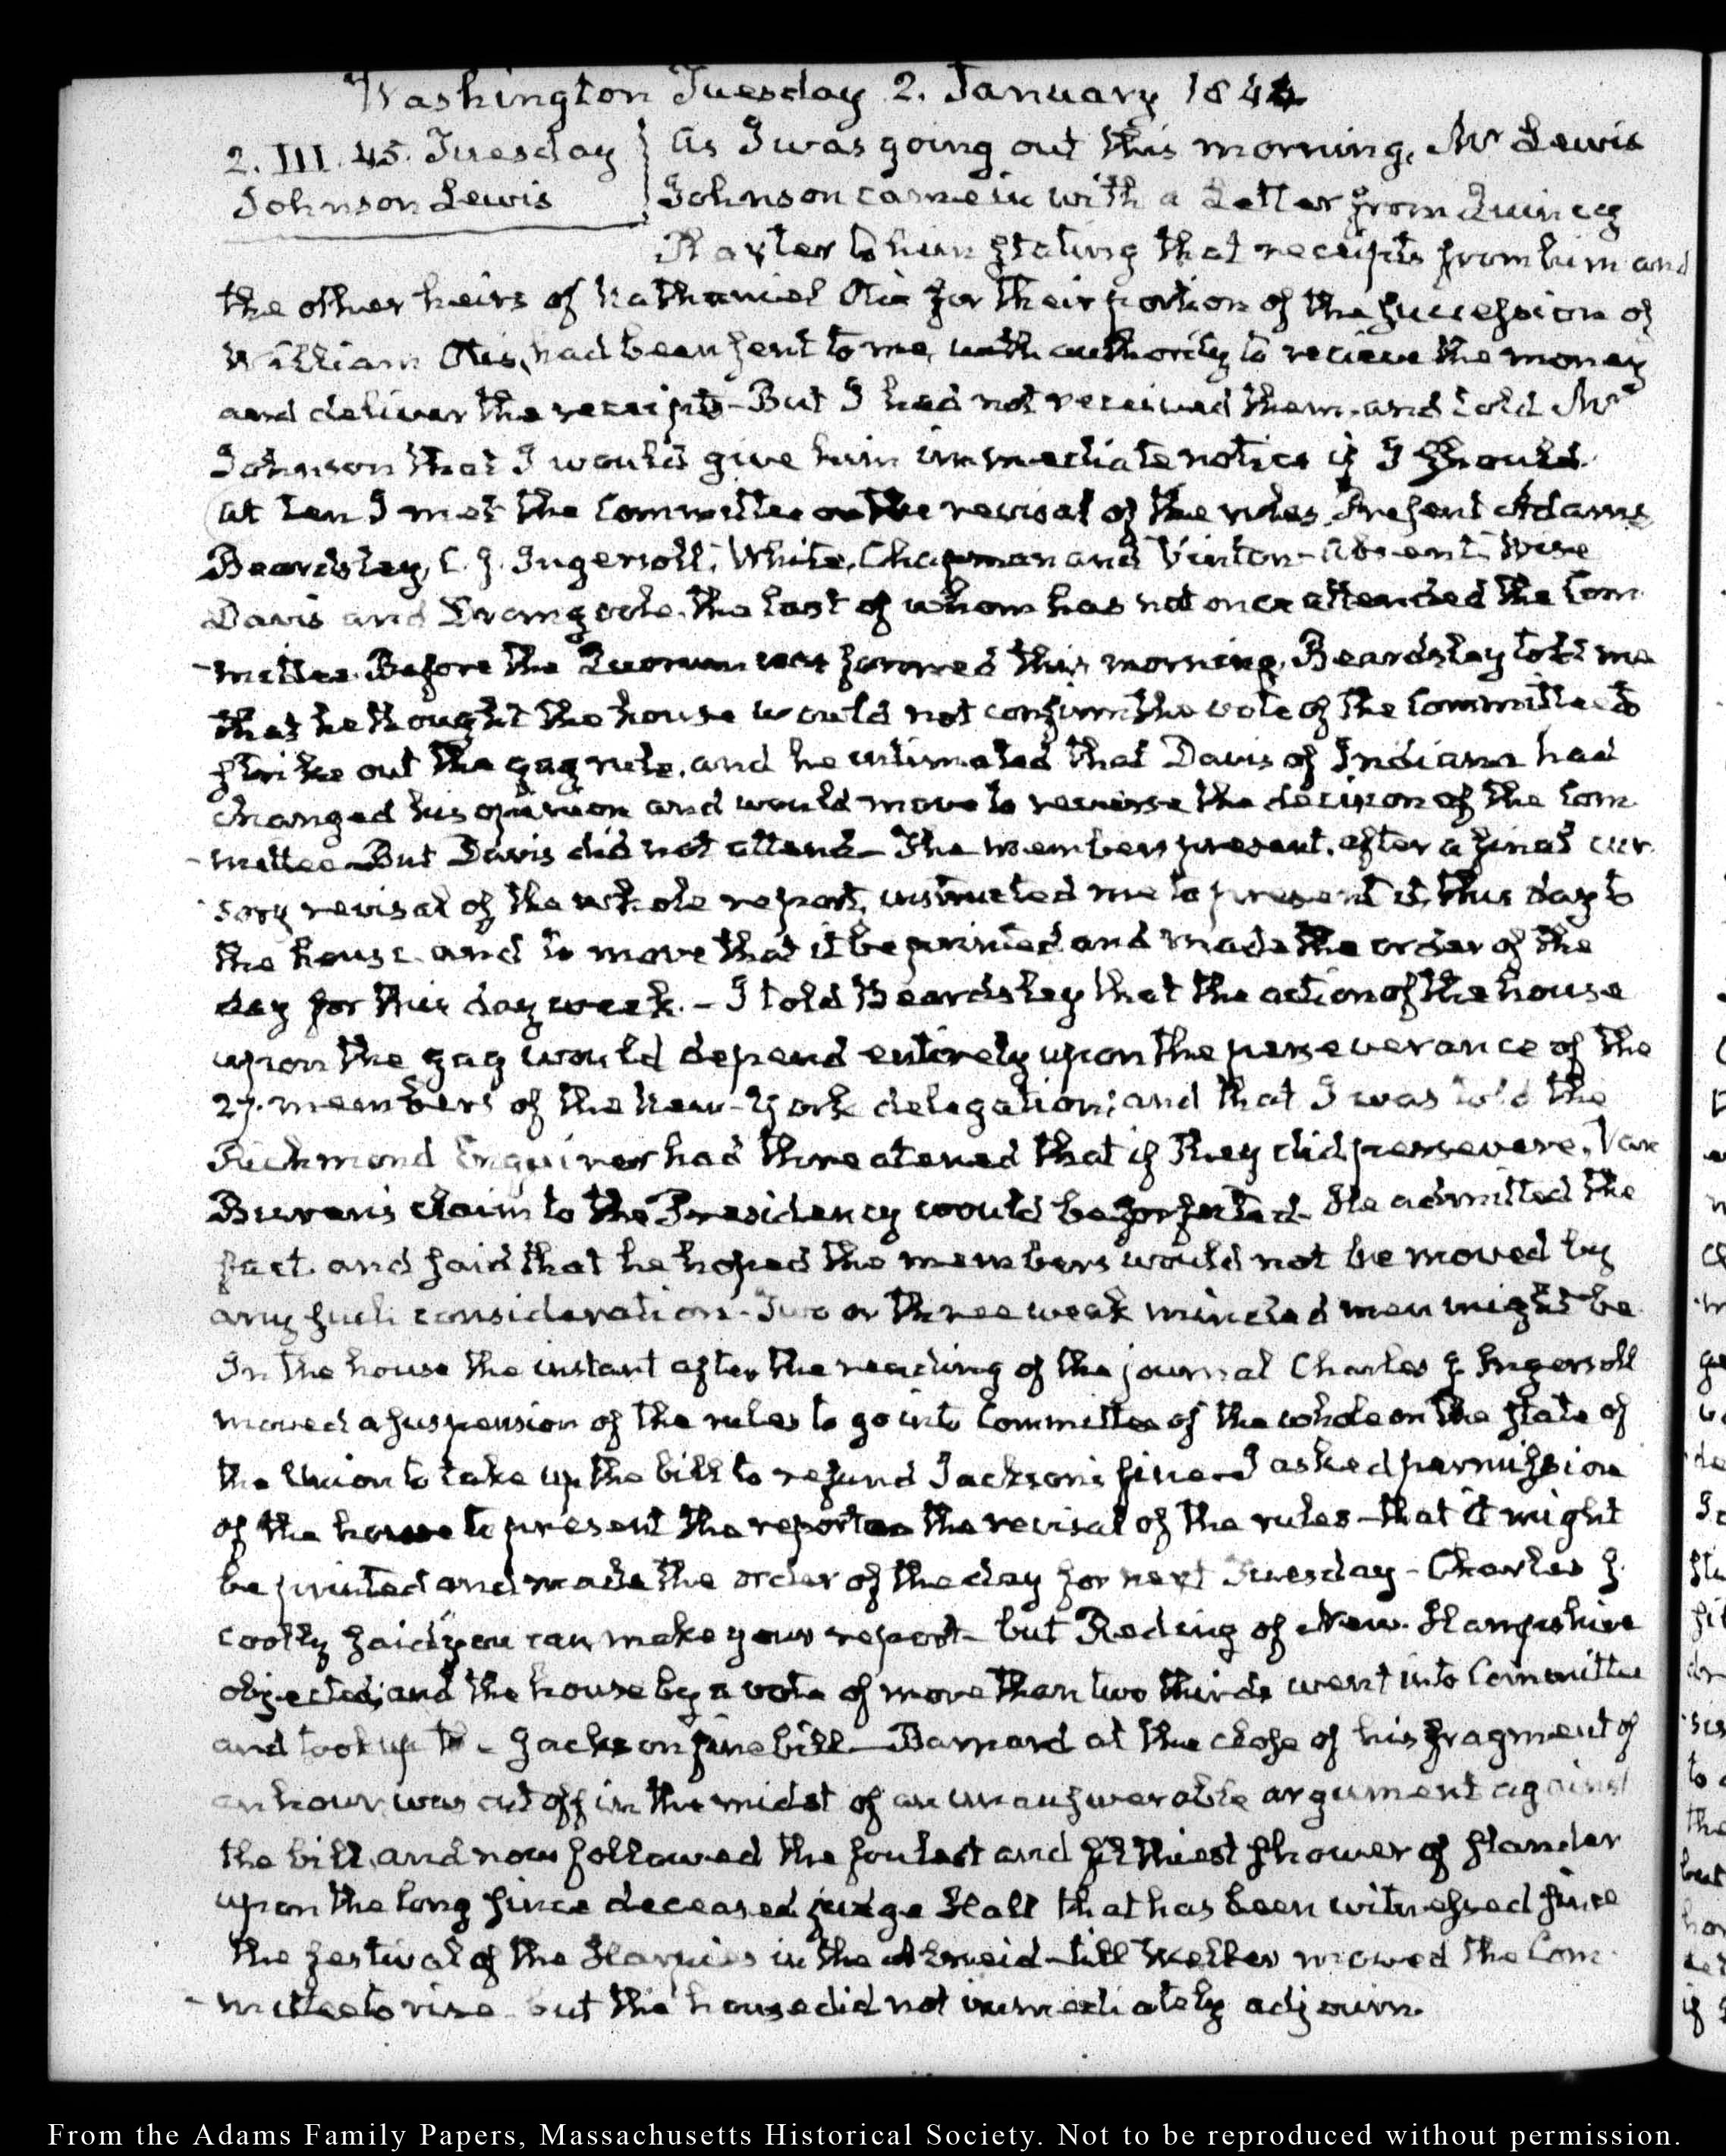 Washington Tuesday 2. January 1844
2. III. 45. Tuesday
Johnson Lewis
As I was going out this morning, Mr Lewis
Johnson came in with a Letter from Quincy
to him stating that receipts from him and
the other heirs of Nathaniel Otis for their portion of the succession of
William Otis, had been sent to me, with authority to recieve the money
and deliver the receipts—But I had not received them, and told Mr
Johnson that I would give him immediate notice if I should.
At ten I met the Committee on the revisal of the rules, Present Adams
Beardsley, C. J. Ingersoll, White, Chapman and Vinton—absent, Wise
Davis and Dromgoole, the last of whom has not once attended the Com
-mittee. Before the Quorum was formed this morning, Beardsley told me
that he thought the house would not confirm the vote of the Committee to
strike out the gag rule, and he intimated that Davis of Indiana had
changed his opinion and would move to reverse the decision of the Com
-mittee—But Davis did not attend—The members present, after a final cur
-sory revisal of the whole report, instructed me to present it this day to
the house and to move that it be printed and made the order of the
day for this day week.—I told Beardsley that the action of the house
upon the gag would depend entirely upon the perseverance of the
27. members of the New-York delegation; and that I was told the
Richmond Enquirer had threatened that if they did persevere, Van
Buren's claim to the Presidency would be forfeited. He admitted the
fact and said that he hoped the members would not be moved by
any such consideration—Two or three weak minded men might be.
In the house the instant after the reading of the journal Charles J. Ingersoll
moved a suspension of the rules to go into Committee of the whole on the state of
the Union to take up the bill to refund Jackson's fine—I asked permission
of the house to present the report on the revisal of the rules—that it might
be printed and made the order of the day for next Tuesday—Charles J.
coolly said you can make your report—but Reding of New-Hampshire
objected; and the house by a vote of more than two thirds went into Committee
and took up the Jackson fine bill—Barnard at the close of his fragment of
an hour, was cut off in the midst of an unanswerable argument against
the bill, and now followed the foulest and filthiest shower of slander
upon the long since deceased judge Hall that has been witnessed since
the festival of the Harpies in the Aeneid—till Weller moved the Com
-mittee to rise but the house did not immediately adjourn.
From the Adams Family Papers, Massachusetts Historical Society. Not to be reproduced without permission.